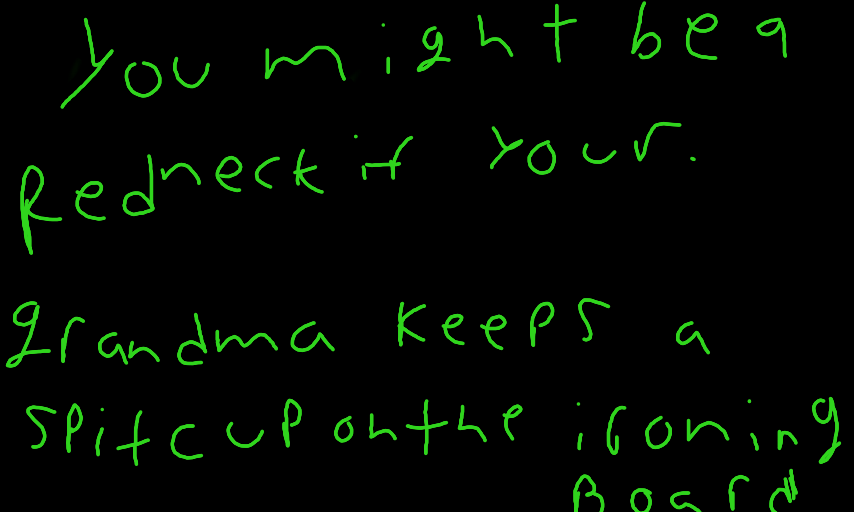 You might be a
Redneck if your.
grandma keeps a
spit cup on the ironing
Board